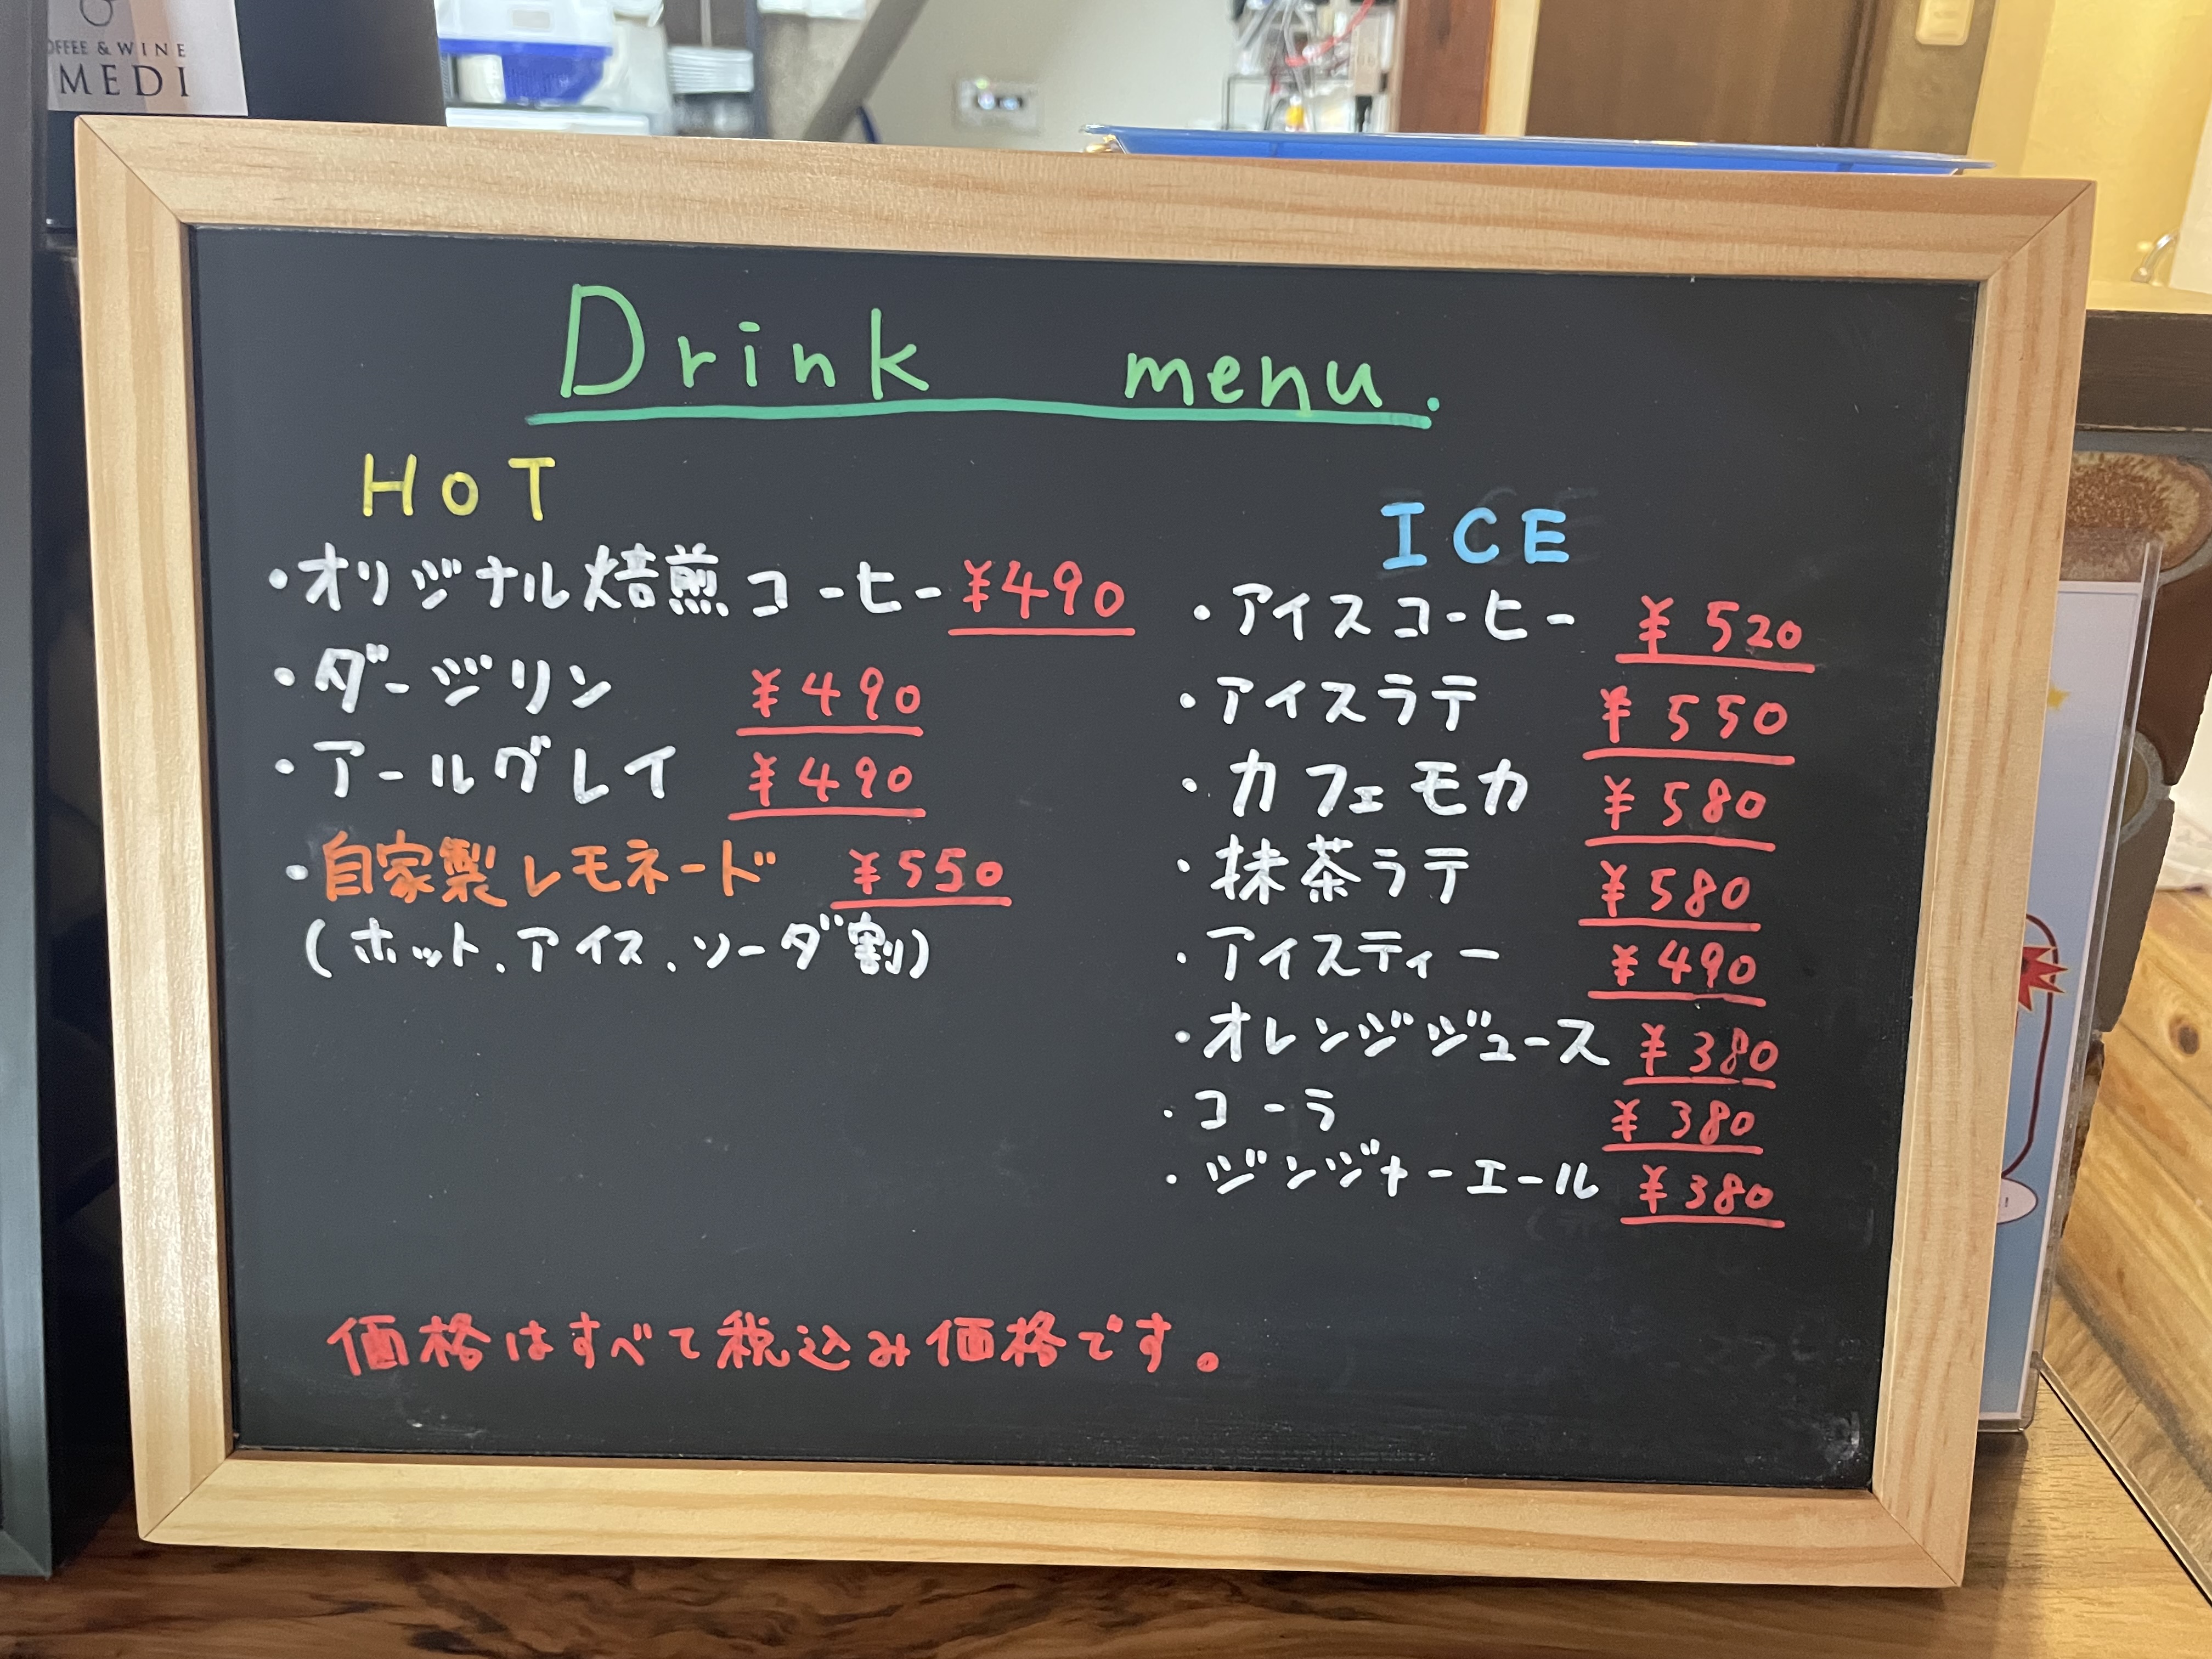 OFFEE & WINE
MEDI
Drink menu.
HOT
・オリジナル焙煎コーヒー ¥490
・ダージリン ¥490
・アールグレイ ¥490
・自家製レモネード ¥550
(ホット、アイス、ソーダ割)
ICE
・アイスコーヒー ¥520
・アイスラテ ¥550
・カフェモカ ¥580
・抹茶ラテ ¥580
・アイスティー ¥490
・オレンジジュース ¥380
・コーラ ¥380
・ジンジャーエール ¥380
価格はすべて税込み価格です。